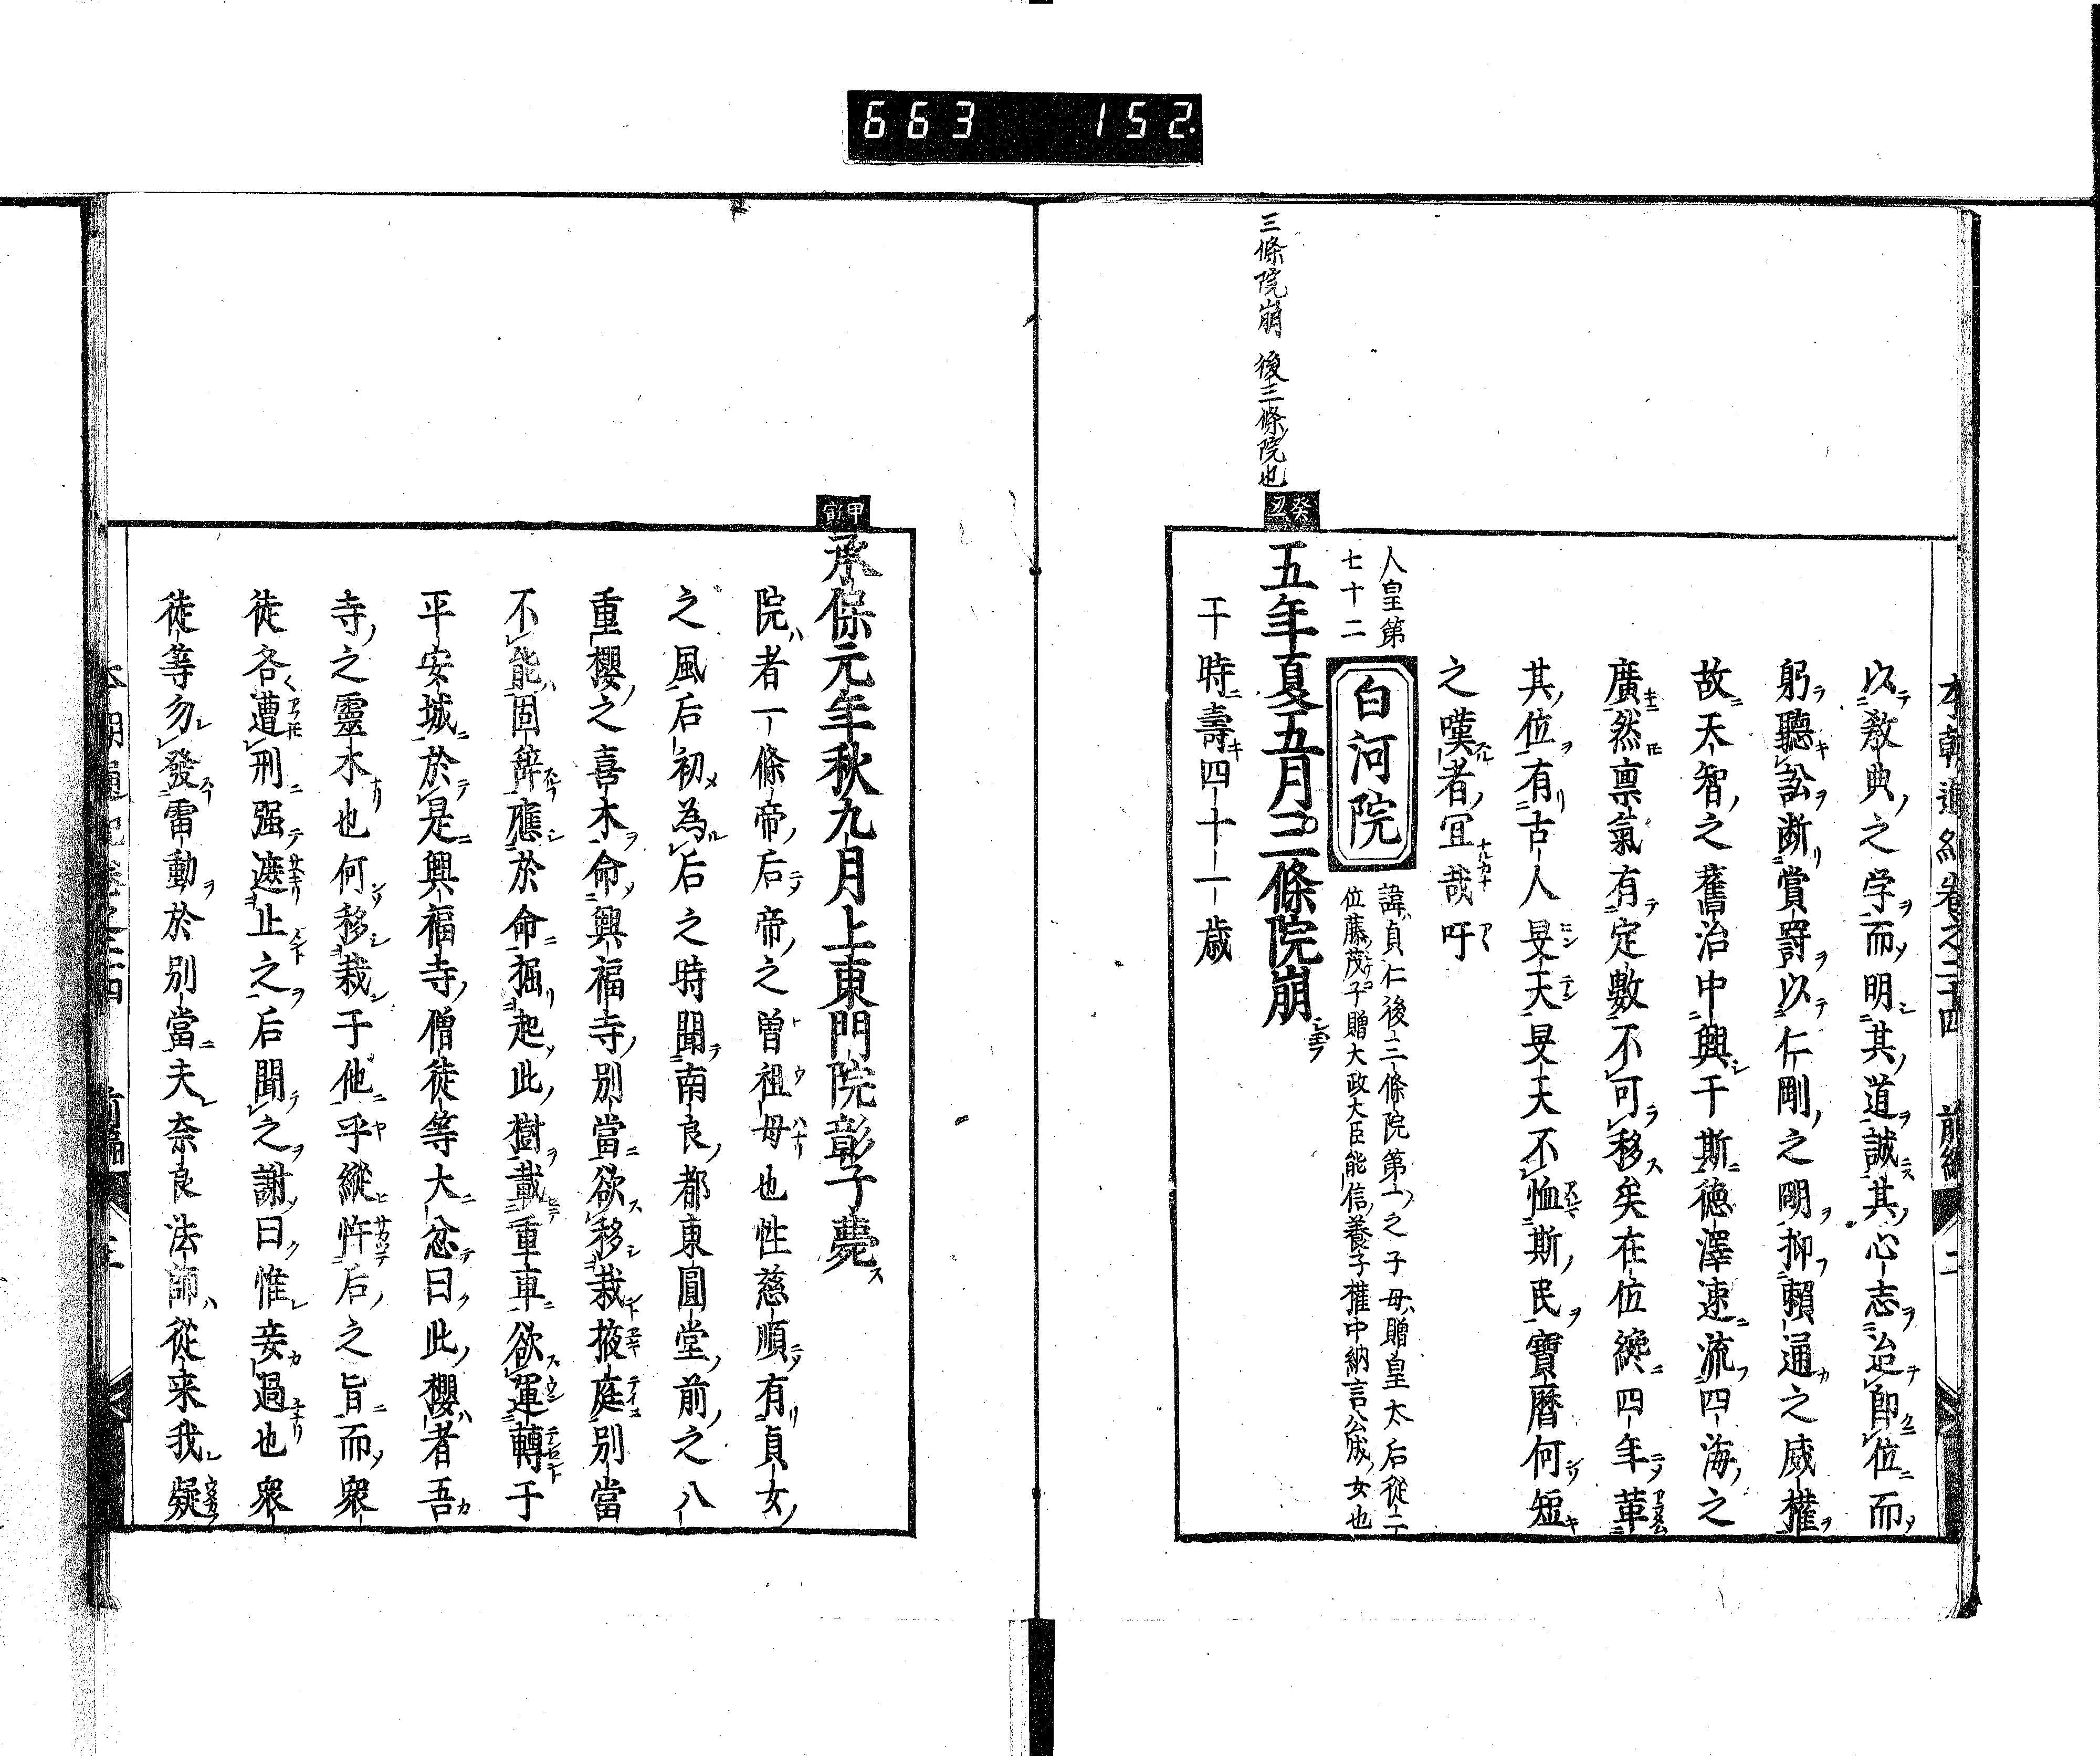 663 152.
本朝通紀卷之二十四 前編 二
以教典之学而明其道誠其心志治即位而
躬聽訟断賞罸以仁剛之明抑賴通之威權
故天智之舊治中興于斯德澤速流四海之
廣然禀氣有定數不可移矣在位纔四年革
其位有古人旻天旻天不恤斯民寶曆何短
之嘆者冝哉吁
人皇第
七十二
白河院
諱貞仁後三條院第一之子母贈皇太后從二
位藤茂子贈大政大臣能信養子權中納言公成女也
三條院崩 後三條院也
癸丑
五年夏五月三條院崩
于時壽四十一歳
甲寅
承保元年秋九月上東門院彰子薨
院者一條帝后帝之曽祖母也性慈順有貞女
之風后初為后之時聞南良都東圓堂前之八
重櫻之喜木命興福寺別當欲移栽掖庭別當
不能固辞應於命掘起此樹載重車欲運轉于
平安城於是興福寺僧徒等大忿曰此櫻者吾
寺之靈木也何移栽于他乎縱忤后之旨而衆
徒各遭刑强遮止之后聞之謝曰惟妾過也衆
徒等勿發雷動於別當夫奈良法師從来我疑
本朝通紀卷之二十四 前編 三